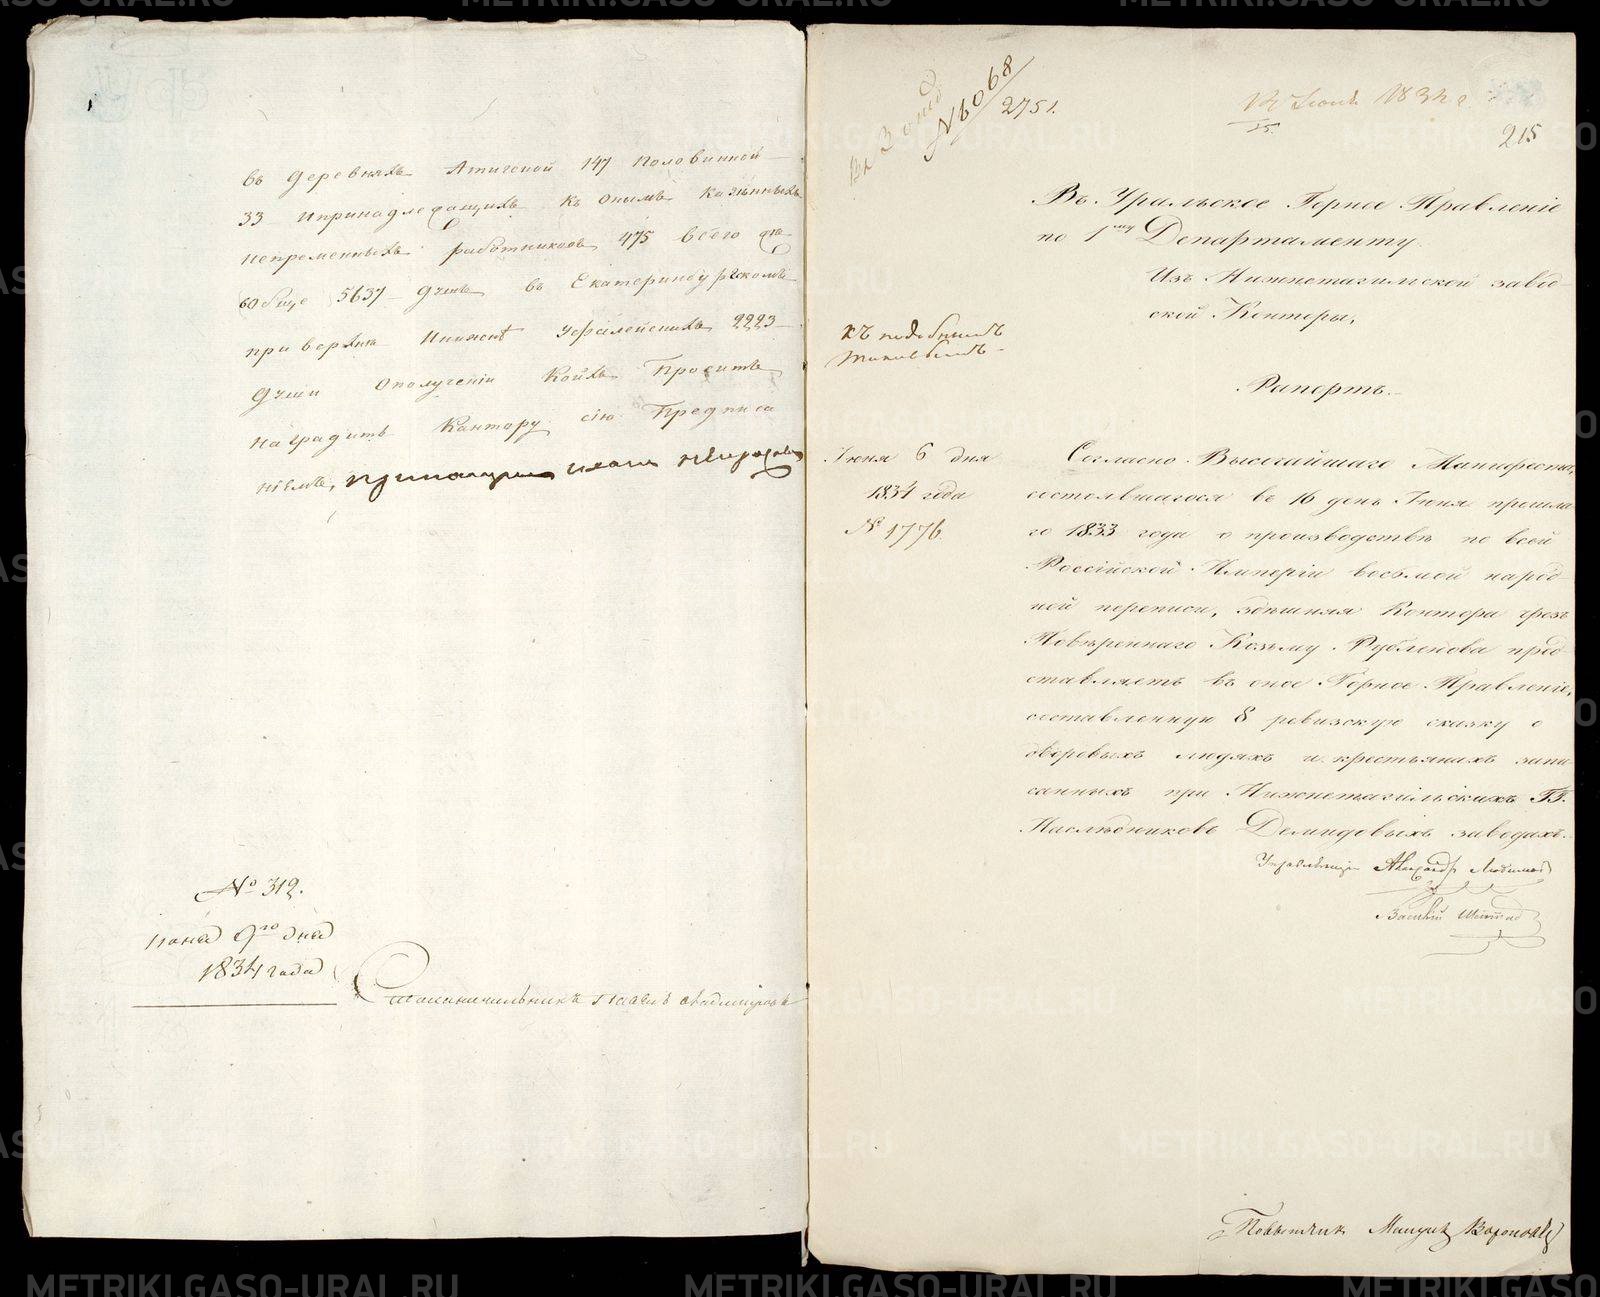 въ деревняхъ Атигской 147 Половинной
33 ипринадлежащихъ къ онымъ казенныхъ
непременныхъ работниковъ 475 всего
вобще 5637 душъ въ Екатеринбургскомъ
при верхне Инижне Уфалейскихъ 2223
души Ополучении Коихъ Проситъ
наградить Кантору сію Предписа
ніемъ,
№ 312.
Июня 9го дня
1834 года
№ 6068
2751.
14 Июня 1834 г.
15.
215
Въ Уральское Горное Правленіе
по 1му Департаменту
Изъ Нижнетагильской завод
ской Конторы,
Рапортъ.
къ подобнымъ
Июня 6 дня
1834 года
№ 1776.
Согласно Высочайшаго Манифеста,
состоявшагося въ 16 день Июня прошла
го 1833 года о производствѣ по всей
Россійской Имперіи восьмой народ
ной переписи, здѣшняя Контора чрезъ
Повѣреннаго Козьму Рублёнова пред
ставляетъ въ оное Горное Правленіе,
составленную 8 ревизскую сказку о
дворовыхъ людяхъ и крестьянахъ запи
санныхъ при Нижнетагильскихъ ГГ.
Наслѣдниковъ Демидовыхъ заводахъ.
Управляющій Александръ Любимовъ
Повытчик Воронов